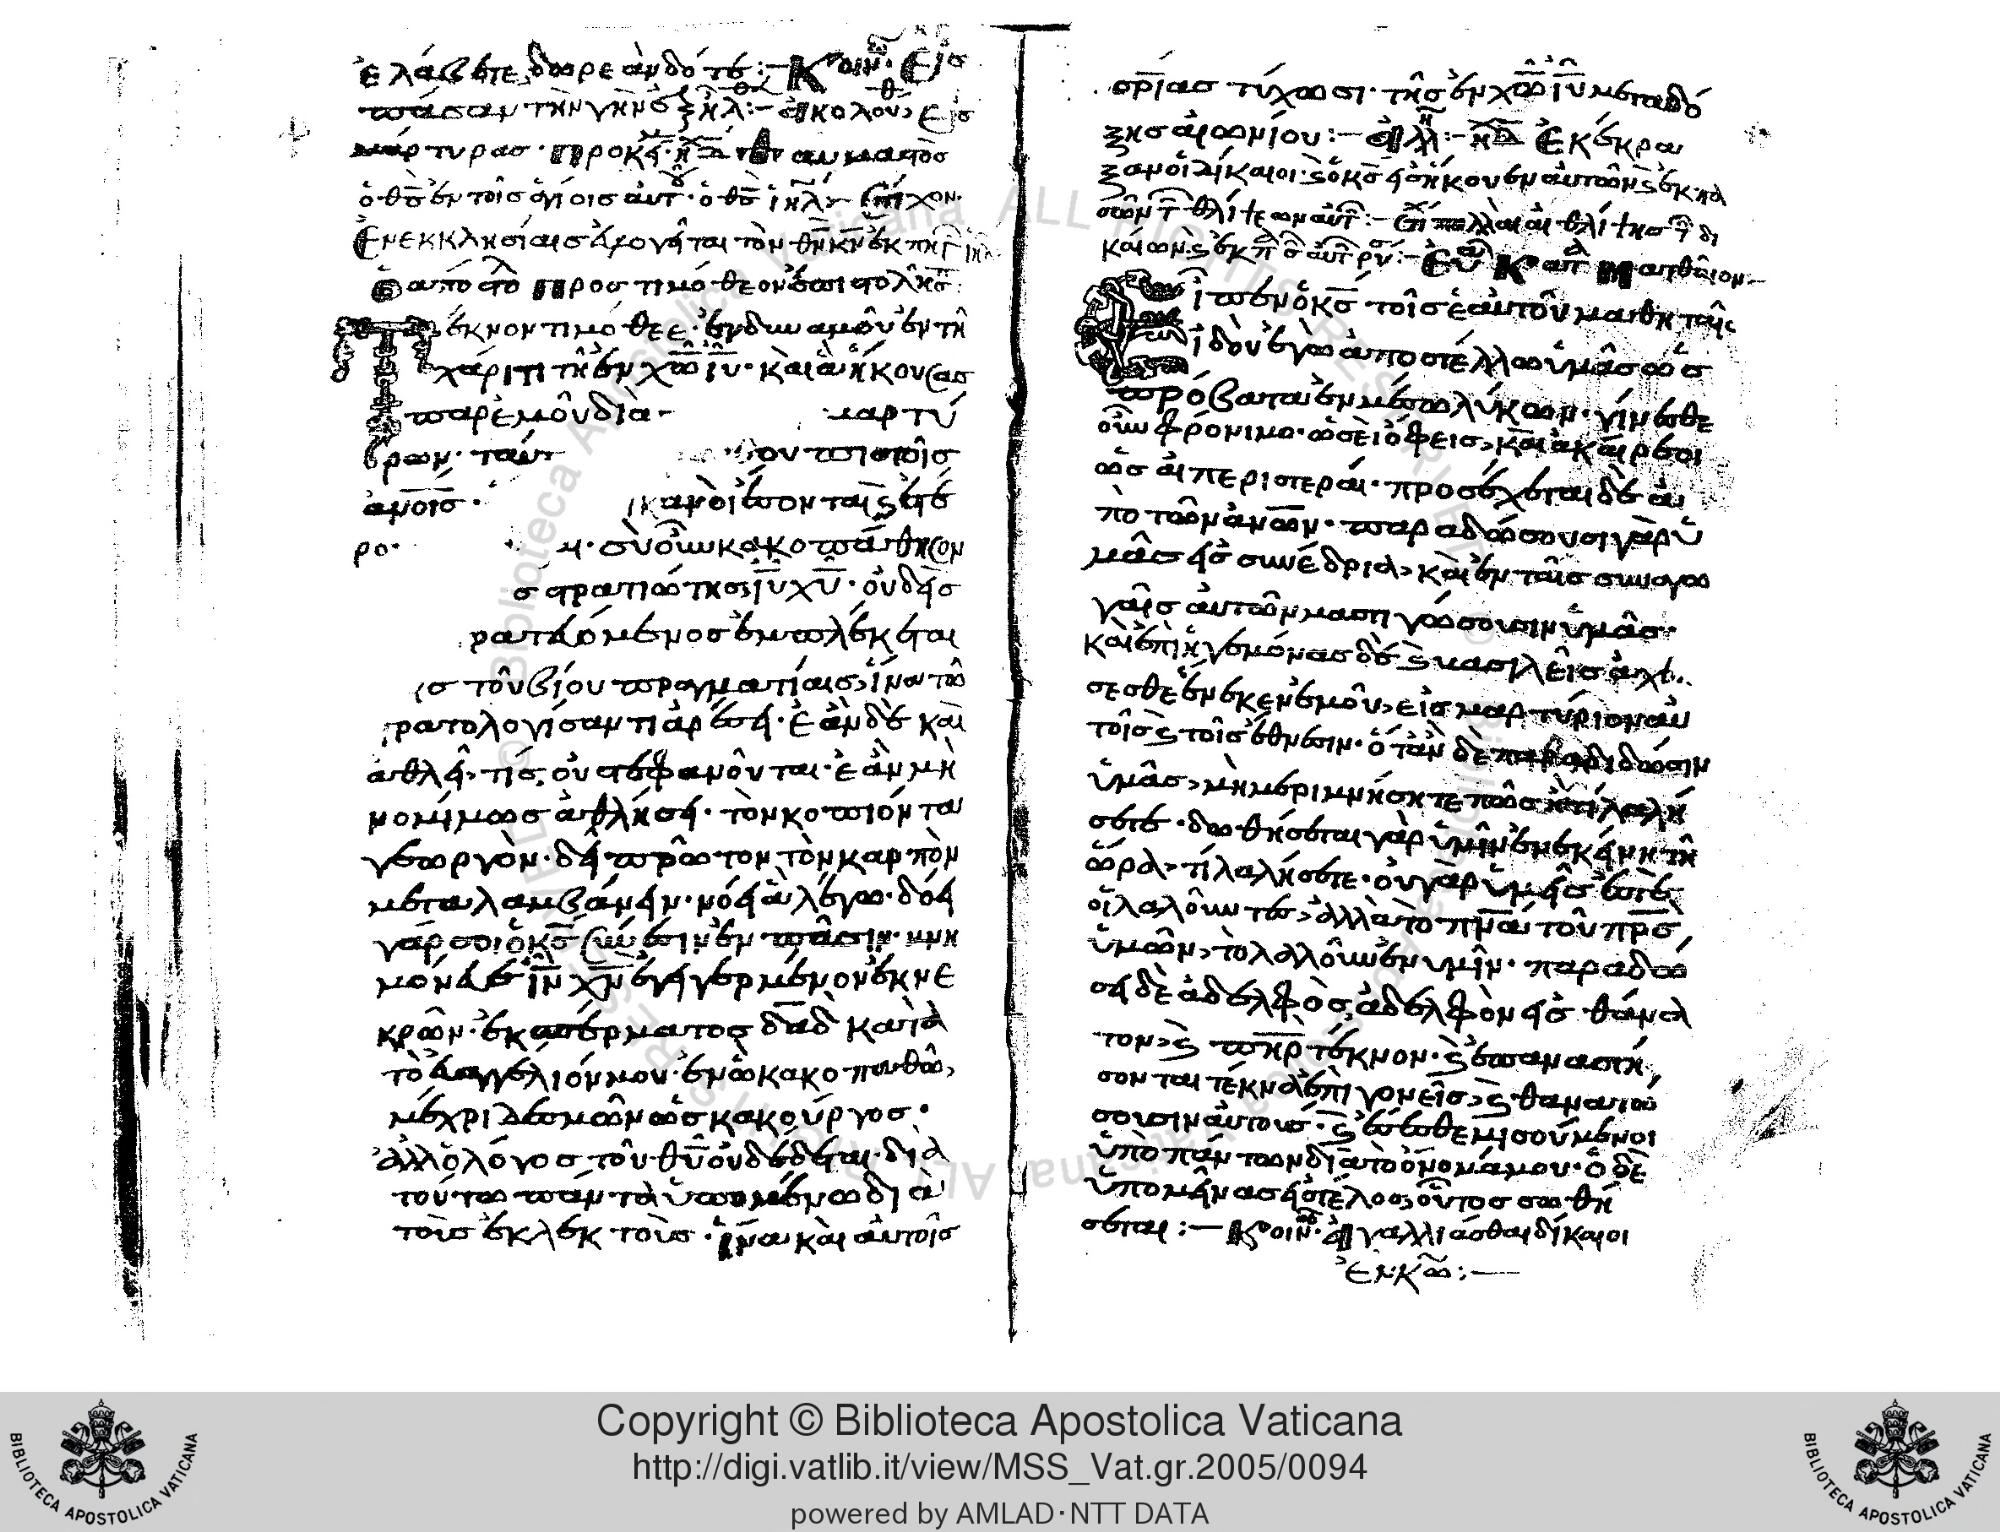 ἐλάβετε, δωρεὰν δότε :— Κοιν. Εἰς
πᾶσαν τὴν γὴν ἐξῆλ :— ἀκολουθ, Εἰς
μάρτυρας · προκεί. ἦχ δ θαυμαστὸς
ὁ θσ ἐν τοῖς ἁγίοις αὐτοῦ · ὁ θσ ιηλ :— στίχον.
Ἐν ἐκκλησίαις εὐλογεῖται τὸν θν κν ἐκ πηγ ιηλ
ἀπόστολ πρὸς τιμόθεον ἐπιστολῆς
Τέκνον τιμόθεε · ἐνδυναμοῦ ἐν τῆ
χάριτι τῆ ἐν χω ιυ · καὶ ἃ ἤκουσας
παρ' ἐμοῦ διὰ μαρτύ
ρων · ταῦτ ου πιστοῖς
ανοις · ἱκανοὶ ἔσονται ϛ ἑτέ
ρο · σὺ οὖν κακοπάθησον
στρατιώτης ιυ χυ · οὐδεὶς
ρατευόμενος ἐμπλέκεται
ις τοῦ βίου πραγματίαις, ἵνα τῶ
ρατολογίσαντι ἀρέσει · ἐὰν δὲ καὶ
ἀθλεῖ, τίς, οὐ στεφανοῦνται · ἐὰν μὴ
νομίμως ἀθλήσει · τὸν κοπιόντα
γεωργὸν · δεῖ πρῶτον τὸν καρπὸν
μεταλαμβάνειν · νόει ἃ λέγω · δόει
γάρ σοι ὁ κσ σύνεσιν ἐν πᾶσιν · μνη
μόνευε ιν χν ἐγειγερμένον ἐκ νε
κρῶν · ἐκ σπέρματος δαδ κατὰ
τὸ εὐαγγέλιόν μου · ἐν ὧ κακοπαθῶ,
μέχρι δεσμῶν ὡς κακούργος ·
ἀλλ' ὁ λόγος τοῦ θυ οὐ δέδεται · διὰ
τοῦτω πάντα ὑπομένω διὰ
τοὺς ἐκλεκτοὺς · ἵνα καὶ αὐτοῖς
σριας τύχωσι · τῆς ἐν χω ιυ μετὰ δό
ξης αἰωνίου :— ἀλλ :— ἦχ δ Ἐκέκρα
ξαν οἱ δίκαιοι · ϛ ὁ κσ εἰσήκουσεν αὐτῶν ϛ ἐκ πα
σῶν τ θλίψεων αὐτ :— στι πολλαὶ αἱ θλίψης τ δι
καίων ϛ ἐκ π αὐτ ρυ :— Εὐα Κατ Ματθαιον :—
Εἶπεν ὁ κσ τοῖς ἑαυτοῦ μαθηταῖς
ἰδοὺ ἐγὼ ἀποστέλλω ὑμᾶς ὡς
πρόβατα ἐν μέσω λύκων · γίνεσθε
οὖν φρόνιμοι · ὡσεὶ ὄφεις, καὶ ἀκαίρεοι
ὡς αἱ περιστεραί · προσέχεται δὲ ἀ
πὸ τῶν ανων · παραδώσουσι γὰρ ὑ
μᾶς εἰς συνέδρια, καὶ ἐν ταῖς συναγω
γαῖς αὐτῶν μαστηγώσουσιν ὑμᾶς ·
καὶ ἐπὶ ἡγεμόνας δὲ ϛ βασιλεῖς ἀχθ
σεσθε ἕνεκεν ἐμοῦ, εἰς μαρτύριον αὐ
τοῖς ϛ τοῖς ἔθνεσιν · ὅταν δὲ παραδιδῶσιν
ὑμᾶς, μὴ μεριμνήσητε πῶς ἢ τί λαλή
σετε · δωθήσεται γὰρ ὑμῖν ἐν ἐκείνη τῆ
ὥρα, τί λαλήσετε · οὐ γὰρ ὑμεῖς ἐστὲ
οἱ λαλοῦντες, ἀλλὰ τὸ πνα τοῦ πρσ
ὑμῶν, τὸ λαλοῦν ἐν ὑμῖν · παραδώ
σει δὲ ἀδελφὸς, ἀδελφὸν εἰς θάνα
τον, ϛ πηρ τέκνον · ϛ ἐπαναστή
σονται τέκνα ἐπὶ γονεῖς, ϛ θανατώ
σουσιν αὐτούς · ϛ ἔσεσθε μισούμενοι
ὑπὸ πάντων διὰ τὸ ὄνομά μου · ὁ δὲ
ὑπομείνας εἰς τέλος, οὗτος σωθή
σεται :— Κοιν. ἀγαλλιάσθαι δίκαιοι
ἐν κω :—
Copyright © Biblioteca Apostolica Vaticana
http://digi.vatlib.it/view/MSS_Vat.gr.2005/0094
powered by AMLAD·NTT DATA
BIBLIOTECA APOSTOLICA VATICANA
BIBLIOTECA APOSTOLICA VATICANA